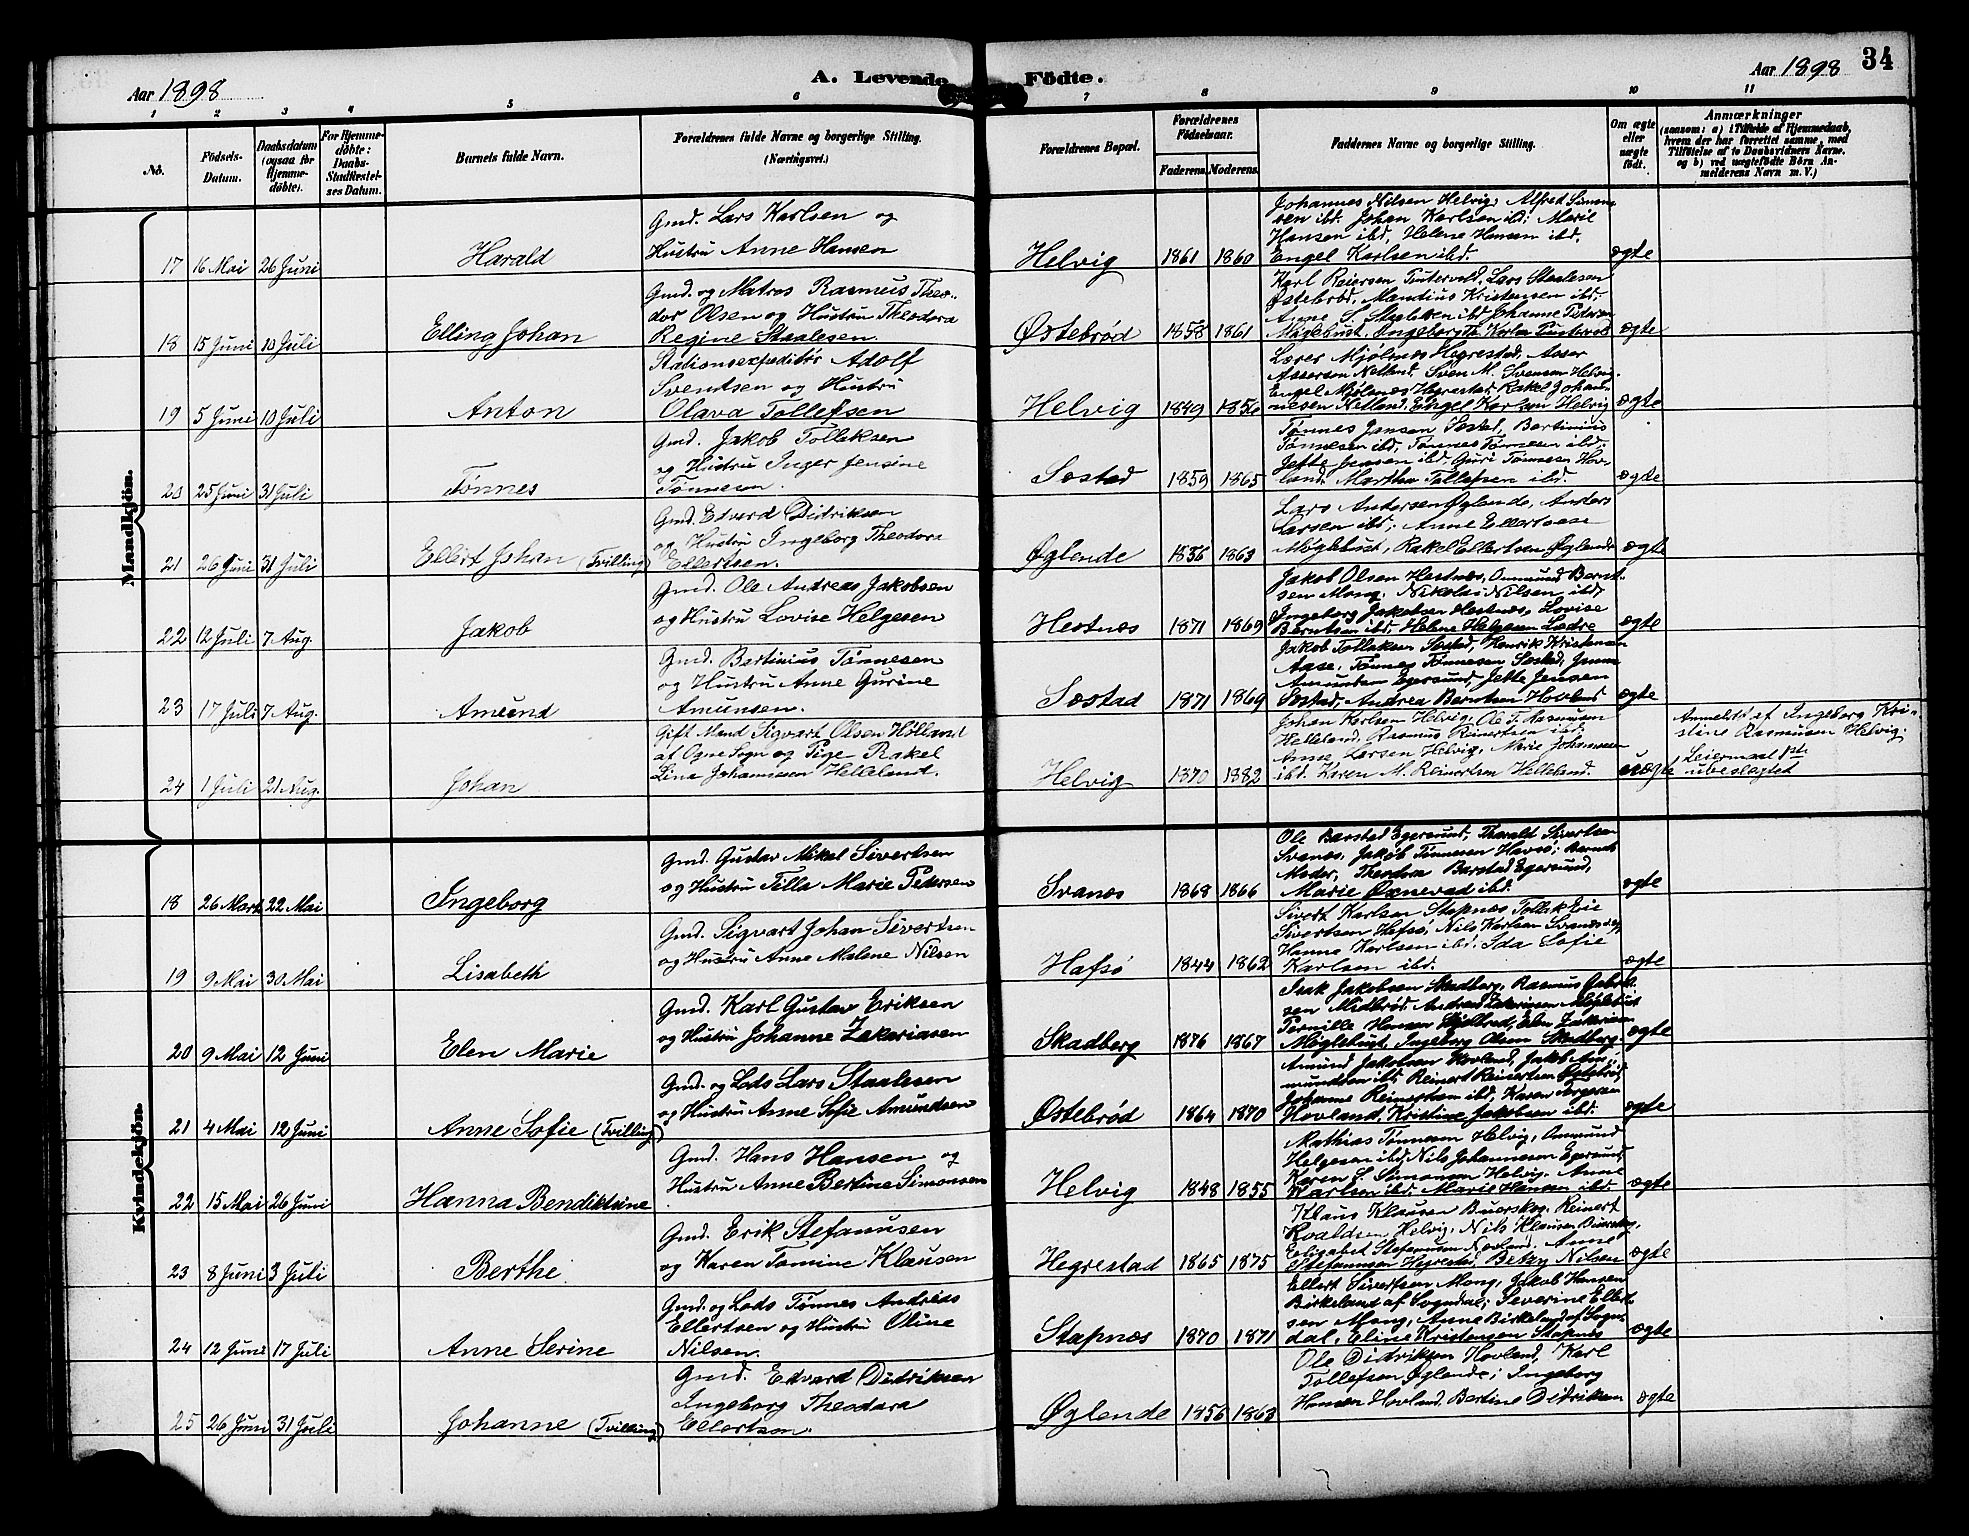 Aar 1898
A. Levende Födte.
Aar 1898
34
1 2 3 4 5 6 7 8 9 10 11
No.
Födsels-
Datum.
Daabsdatum
(ogsaa for
Hjemme-
döbte).
For Hjemme-
döbte:
Daabs-
Stadfæstel-
ses Datum.
Barnets fulde Navn.
Forældrenes fulde Navne og borgerlige Stilling.
(Næringsvei.)
Forældrenes Bopæl.
Forældrenes
Födselsaar.
Faderens. Moderens.
Faddernes Navne og borgerlige Stilling.
Om ægte
eller
uægte
födt.
Anmærkninger
(saasom: a) i Tilfælde af Hjemmedaab,
hvem der har forrettet samme, med
Tilföielse af to Daabsvidners Navne,
og b) ved uægtefödte Börn An-
melderens Navn m. V.)
Mandkjön.
17 16 Mai 26 Juni Harald
Gmd. Lars Karlsen og
Hustru Anne Hansen
Helvig 1861 1860
Johannes Nilsen Helvig, Alfred Simon-
sen ibd. Johan Karlsen ibd. Marie
Hansen ibd, Helene Hansen ibd,
Engel Karlsen ibd.
ægte
18 15 Juni 10 Juli Elling Johan
Gmd. og Matros Rasmus Theo-
dor Olsen og Hustru Theodora
Regine Staalesen.
Østebrød 1858 1861
Karl Reiersen, Lars Staalesen
Østebrød, Mandius Kristensen ibd.
ægte
19 5 Juni 10 Juli Anton
Stationsexpeditör Adolf
Svendsen og Hustru
Olava Tollefsen
Helvig 1849 1856
Lærer Mjølnæs Hegrestad, Asser
Assersen Netland, Sven M. Svensen Helvig.
Engel Mjølnæs Hegrestad, Rakel Johan-
nesen Netland, Engel Karlsen Helvig
ægte
20 25 Juni 31 Juli Tönnes
Gmd. Jakob Tolleksen
og Hustru Inger Jensine
Tönnesen.
Sæstad 1859 1865
Tønnes Jensen Sæstad, Bertinius
Tønnesen ibd, Tønnes Tønnesen ibd,
Jette Jensen ibd. Guri Tønnesen Hov-
land, Martha Tollefsen ibd.
ægte
21 26 Juni 31 Juli Ellert Johan (Tvilling)
Gmd. Edvard Didriksen
og Hustru Ingeborg Theodora
Ellertsen.
Øglende 1856 1863
Lars Andersen Øglende, Anders
Larsen ibd, Anne
Møglehust, Rakel Ellertsen Øglende
ægte
22 12 Juli 7 Aug. Jakob
Gmd. Ole Andreas Jakobsen
og Hustru Lovise Helgesen
Hestnæs 1871 1869
Jakob Olsen Hestnæs, Ommund Bernt-
sen Mong, Nikolai Nilsen ibd,
Ingeborg Jakobsen Hestnæs, Lovise
Berntsen ibd, Helene Helgesen Lædre
ægte
23 17 Juli 7 Aug. Amund
Gmd. Bertinius Tönnesen
og Hustru Anne Gurine
Amunsen.
Sæstad 1871 1869
Jakob Tolleksen Sæstad, Henrik Kristensen
Aase, Tønnes Tønnesen Sæstad,
Amundsen Egersund, Jette Jensen
Sæstad, Andrea Berntsen Hovland
ægte
24 1 Juli 21 Aug. Johan
Gift Mand Sigvart Olsen Hølland
af Ogne Sogn og Pige Rakel
Line Johannesen Helleland.
Helvig 1870 1882
Johan Karlsen Helvig, Ole T. Rasmusen
Helleland, Rasmus Reinertsen ibd;
Anne Larsen Helvig, Marie Johannesen
ibd. Karen M. Reinertsen Helleland.
uægte
Anmeldt af Ingeborg Kri-
stine Rasmusen Helvig.
Leiermaal 1ste
ubeslægtet
Kvindekjön.
18 26 Marts 22 Mai Ingeborg
Gmd. Gustav Mikal Sivertsen
og Hustru Tilla Marie Pedersen
Svanæs 1868 1866
Ole Barstad Egersund, Tharald Sivertsen
Svanæs, Jakob Tönnesen Havsø; Barnets
Moder, Theodora Barstad Egersund,
Marie Øxnevad ibd.
ægte
19 9 Mai 30 Mai Lisabeth
Gmd. Sigvart Johan Sivertsen
og Hustru Anne Malene Nilsen
Hafsö 1844 1862
Sivert Karlsen Stapnæs, Tollak Eie
Sivertsen Hafsö, Nils Karlsen Svanæs,
Hanne Karlsen ibd. Ida Sofie
Karlsen ibd.
ægte
20 9 Mai 12 Juni Elen Marie
Gmd. Karl Gustav Eriksen
og Hustru Johanne Zakariasen
Skadberg 1876 1867
Isak Jakobsen Skadberg, Rasmus Gabriel-
sen Midbrød, Andreas Zakariasen Møglehust
Pernille Hansen, Elen Zakariasen
Møglehust, Ingeborg Olsen Skadberg.
ægte
21 4 Mai 12 Juni Anne Sofie (Tvilling)
Gmd. og Lods Lars Staalesen
og Hustru Anne Sofie Amundsen
Østebröd 1864 1870
Amund Jakobsen Hovland, Jakob Am-
mundsen ibd, Reinert Reinertsen Østebrød,
Johanne Reinertsen ibd, Karen
Hovland, Kristine Jakobsen ibd.
ægte
22 15 Mai 26 Juni Hanna Bendiktine
Gmd. Hans Hansen og
Hustru Anne Bertine Simonsen
Helvig 1848 1855
Mathias Tönnesen Helvig, Ommund
Helgesen ibd, Nils Johannesen Egersund,
Karen S. Simonsen Helvig. Anne
Karlsen ibd. Marie Hansen ibd.
ægte
23 8 Juni 3 Juli Berthe
Gmd. Erik Stefanusen
og Karen Tomine Klausen
Hegrestad 1865 1875
Klaus Klausen Buerskog, Reinert
Roaldsen Helvig, Nils Klausen Buerskog,
Elisabet Stefanusen Hovland, Anne
Stefanusen Hegrestad, Betzy Nilsen
ægte
24 12 Juni 17 Juli Anne Serine
Gmd. og Lods Tönnes Andreas
Ellertsen og Hustru Oline
Nilsen.
Stapnæs 1870 1871
Ellert Sivertsen Mong, Jakob Hansen
Birkeland af Sogndal; Severine Ellert-
sen Mong, Anne Birkeland af Sogn-
dal, Eline Kristensen Stapnæs
ægte
25 26 Juni 31 Juli Johanne (Tvilling)
Gmd. Edvard Didriksen
Ingeborg Theodora
Ellertsen.
Øglende 1856 1863
Ole Didriksen Hovland, Karl
Tollefsen Øglende; Ingeborg
Hansen Hovland, Bertine Didriksen
ægte